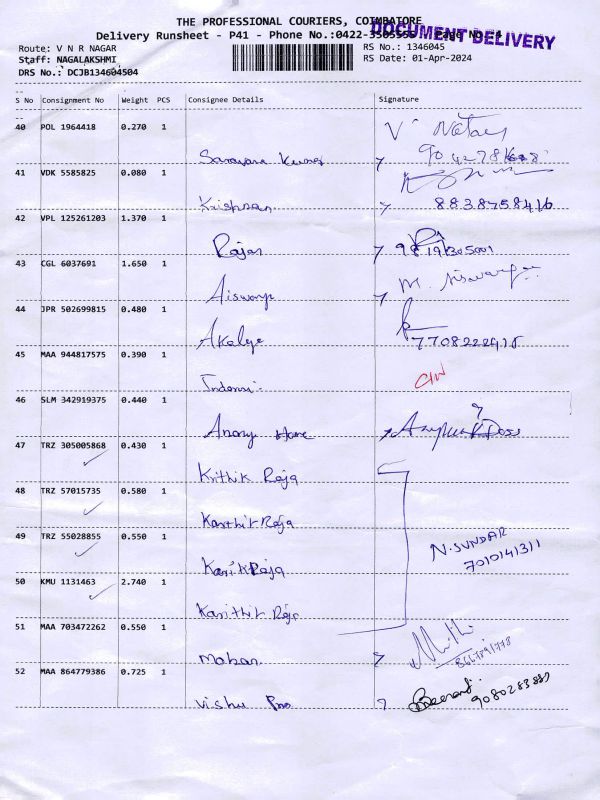 THE PROFESSIONAL COURIERS, COIMBATORE
Delivery Runsheet - P41 - Phone No.:0422- Page No.:4
DOCUMENT DELIVERY
Route: V N R NAGAR
RS No.: 1346045
Staff: NAGALAKSHMI
RS Date: 01-Apr-2024
DRS No.: DCJB134604504
S No Consignment No Weight PCS Consignee Details Signature
40 POL 1964418 0.270 1
Saravana Kumar
41 VDK 5585825 0.080 1
Krishnan 8838758416
42 VPL 125261203 1.370 1
Rajan 9819305001
43 CGL 6037691 1.650 1
Aiswarya M.
44 JPR 502699815 0.480 1
Akalya
45 MAA 944817575 0.390 1
46 SLM 342919375 0.440 1
47 TRZ 305005868 0.430 1
Krithik Raja
48 TRZ 57015735 0.580 1
Karthik Raja
49 TRZ 55028855 0.550 1
Raja
N. SUNDAR
7010141311
50 KMU 1131463 2.740 1
Raja
51 MAA 703472262 0.550 1
Mohan
52 MAA 864779386 0.725 1
Vishu